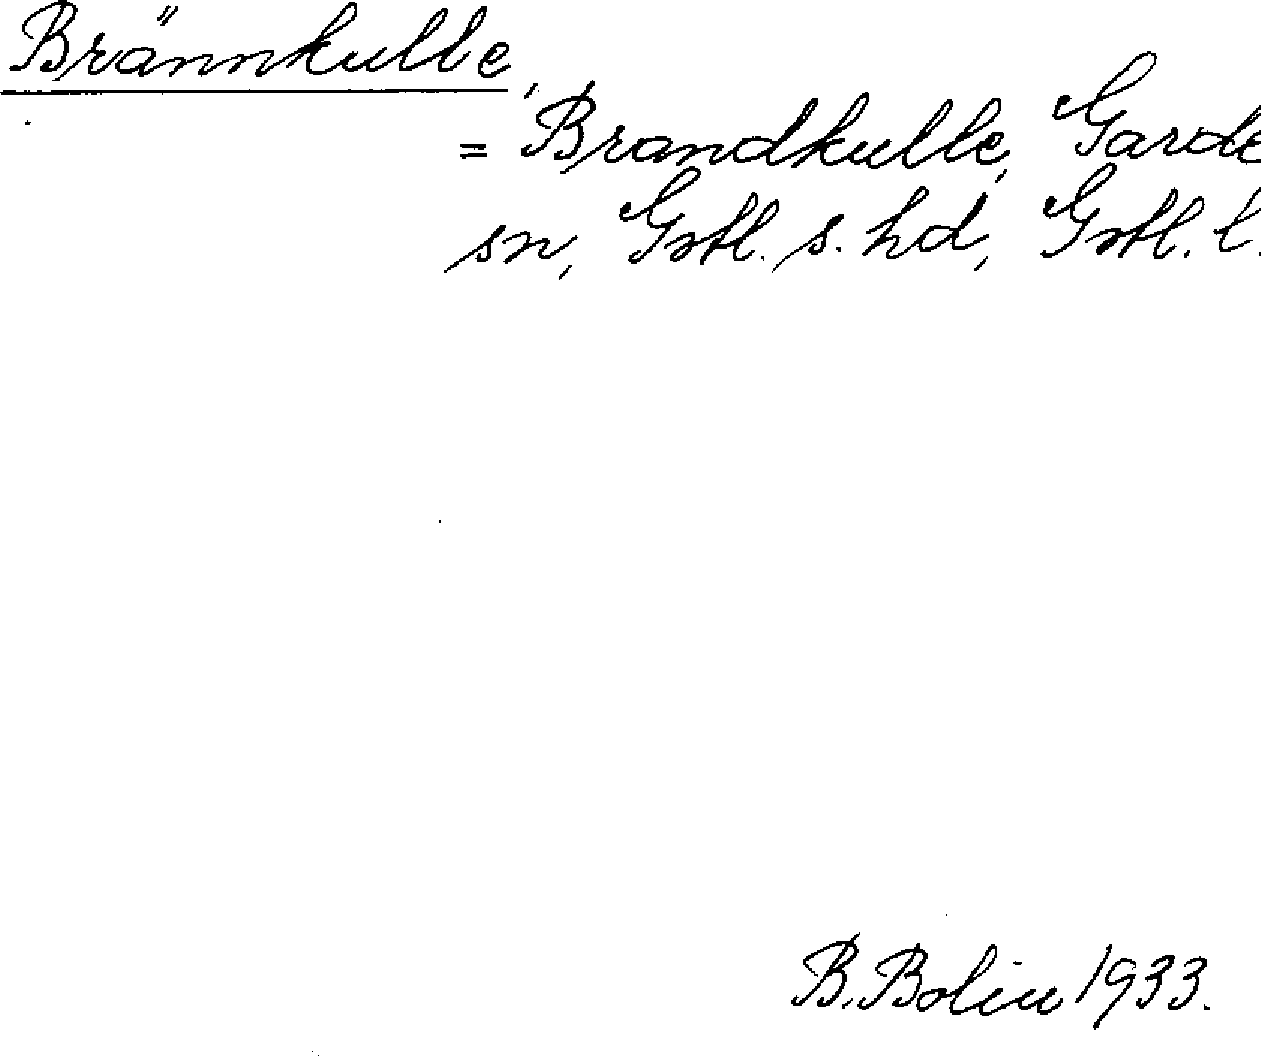 Brännkulle,
= Brandkulle, Garde
sn, Gotl. s. hd, Gotl. l.
B. Bolin 1933.